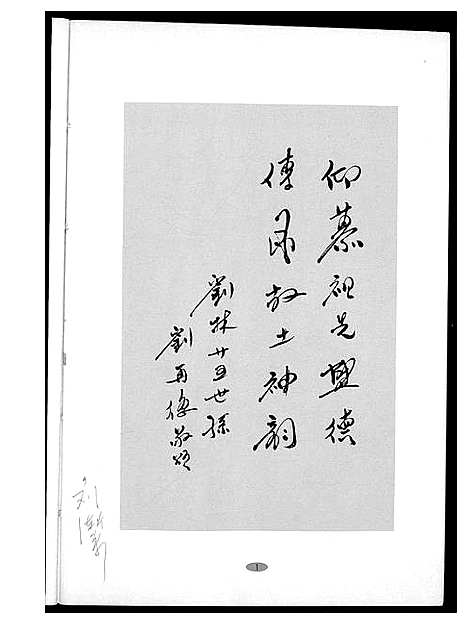 仰慕祖先盛德
傳承故土神韵
劉林廿五世孫
劉再梅敬頌
刘
1